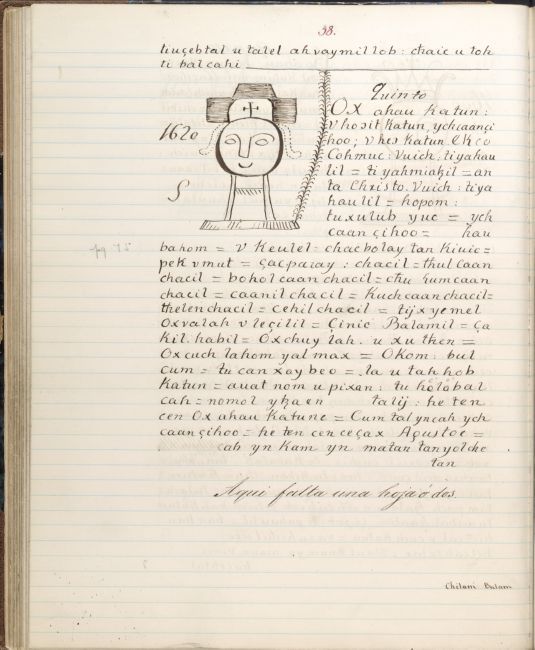 38.
tiuçebtal u talel ah vaymil lob : chaic u toh
ti balcahi
1620
Quinto
Ox ahau Katun :
v hosit Katun, ych caançi
hoo; v hes Katun Ek co
Cohmuc : Vuich, tiyahau
lil = ti yahmiakil = an
ta Christo. Vuich : tiya
hau lil = hopom :
tuxulub yuc = ych
caançihoo = hau
bahom = v Keulel = chacbolay tan Kiuic =
pek v mut = çacpaxay : chacil = thul caan
chacil = bohol caan chacil = chu Kumcaan
chacil = caanil chacil = Kuch caan chacil =
thelen chacil = cehil chacil = tijx yemel
Oxvalah v leçilil = Çinic Balamil = ça
Kil. habil = Oxchuy lah. u xu then =
Ox cuch lahom yal max = Okom : bul
cum = tu can xay beo = la u tah hob
Katun = auat nom u pixan : tu holobal
cah = nomol talij : he ten
cen Ox ahau Katune = Cum tal yncah ych
caançihoo = he ten cen ceçax Agustoe =
cah yn Kam yn matan tan yolche
tan
Aqui falta una hoja ó dos.
Chilam Balam